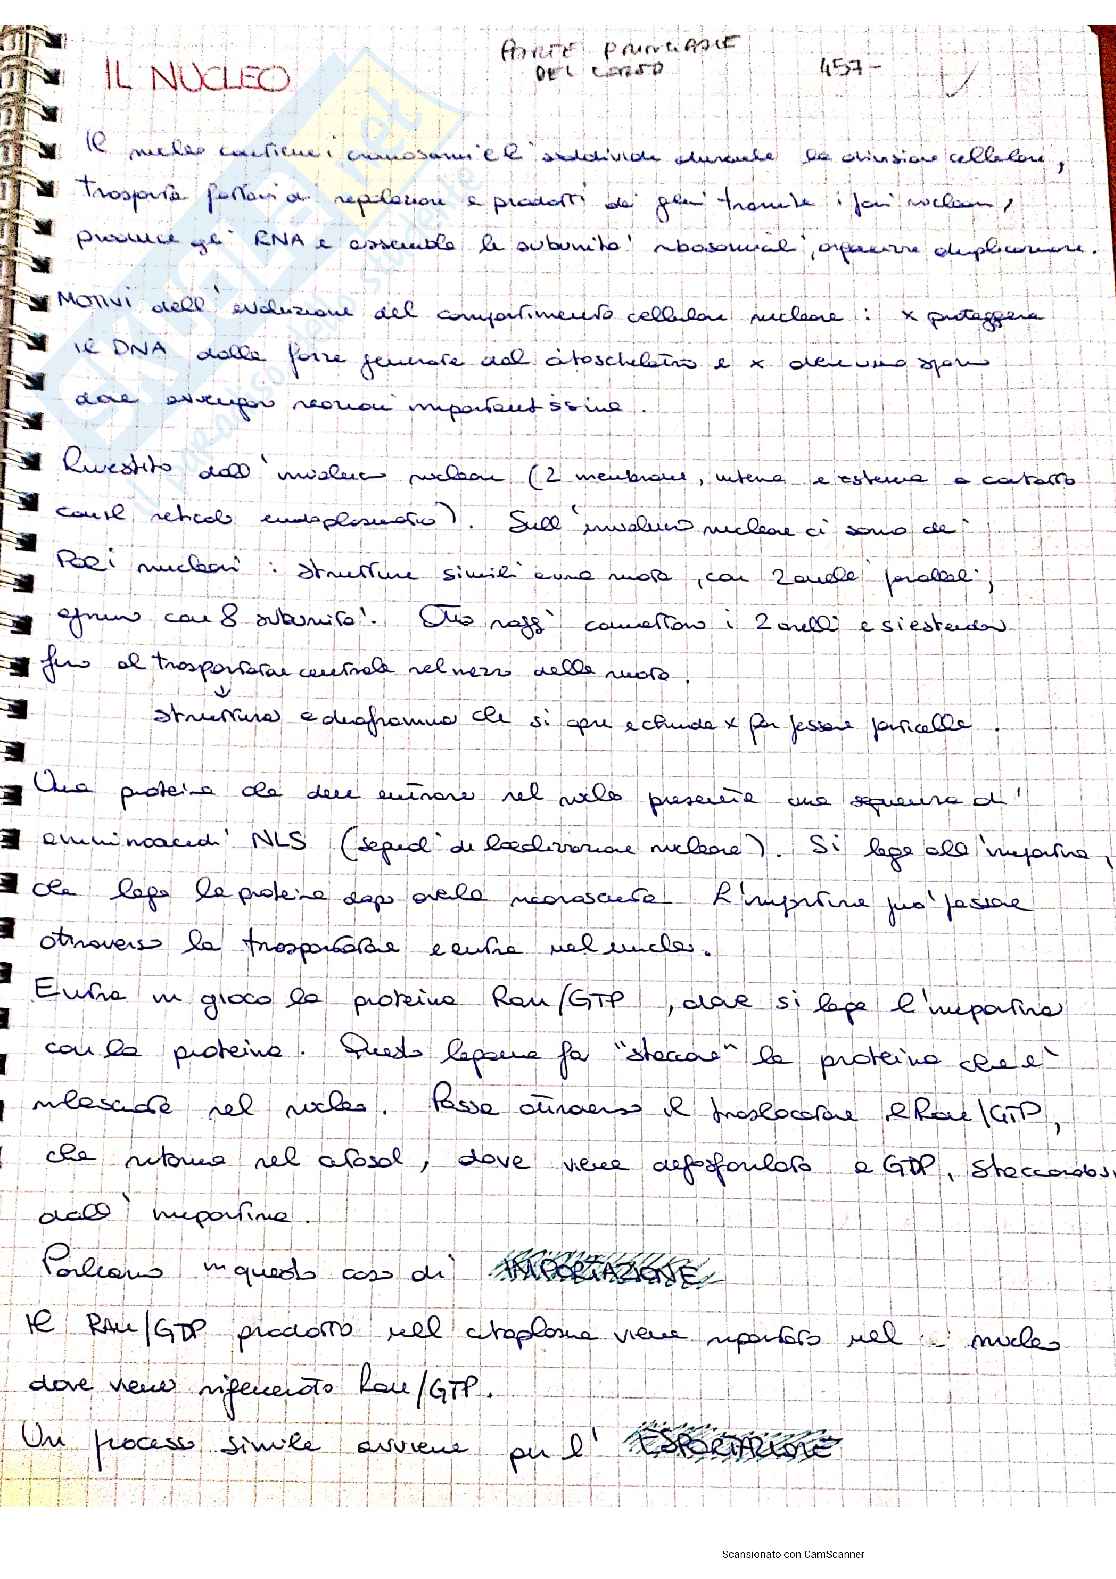 PARTE PRINCIPALE
DEL CORSO
457-
IL NUCLEO
Il nucleo contiene i cromosomi e li suddivide durante la divisione cellulare,
trasporta fattori di regolazione e prodotti dei geni tramite i pori nucleari,
produce gli RNA e assembla le subunità ribosomiali, organizza duplicazione.
MOTIVI dell'evoluzione del compartimento cellulare nucleare : x proteggere
il DNA dalle forze generate dal citoscheletro e x dare uno spazio
dove avvengono reazioni importantissime.
Rivestito dall'involucro nucleare (2 membrane, interna e esterna a contatto
con il reticolo endoplasmatico). Sull'involucro nucleare ci sono dei
PORI nucleari : strutture simili a una ruota, con 2 anelli paralleli,
ognuno con 8 subunità. Otto raggi connettono i 2 anelli e si estendono
fino al trasportatore centrale nel mezzo della ruota.
struttura a diaframma che si apre e chiude x far passare particelle.
Una proteina che deve entrare nel nucleo presenta una sequenza di
amminoacidi NLS (segnali di localizzazione nucleare). Si lega all'importina,
che lega la proteina dopo averla riconosciuta. L'importina può passare
attraverso la trasportatore e entra nel nucleo.
Entra in gioco la proteina Ran/GTP, dove si lega l'importina
con la proteina. Questo legame fa "staccare" la proteina che è
rilasciata nel nucleo. Passa attraverso il traslocatore il Ran/GTP,
che ritorna nel citosol, dove viene defosforilato a GDP, staccandosi
dall'importina.
Parliamo in questo caso di IMPORTAZIONE
Il RAN/GDP prodotto nel citoplasma viene riportato nel nucleo
dove viene rigenerato Ran/GTP.
Un processo simile avviene per l'ESPORTAZIONE
Scansionato con CamScanner